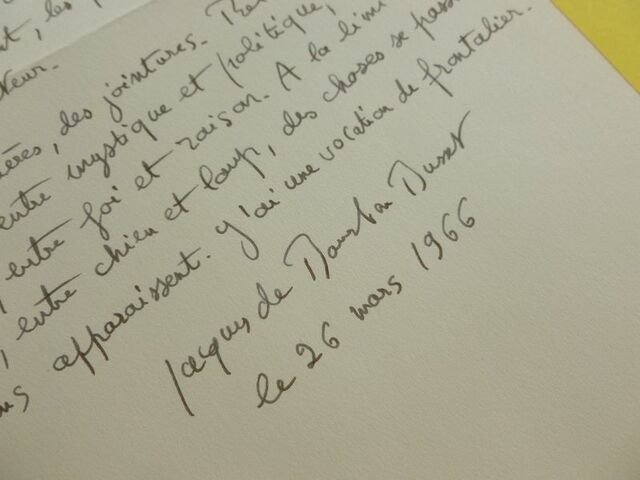 nt, les
teur.
ières, des jointures. Re
entre mystique et politique,
entre foi et raison. A la limi
, entre chien et loup, des choses se pass
ns apparaissent. J'ai une vocation de frontalier.
Jacques de Bourbon Busset
le 26 mars 1966